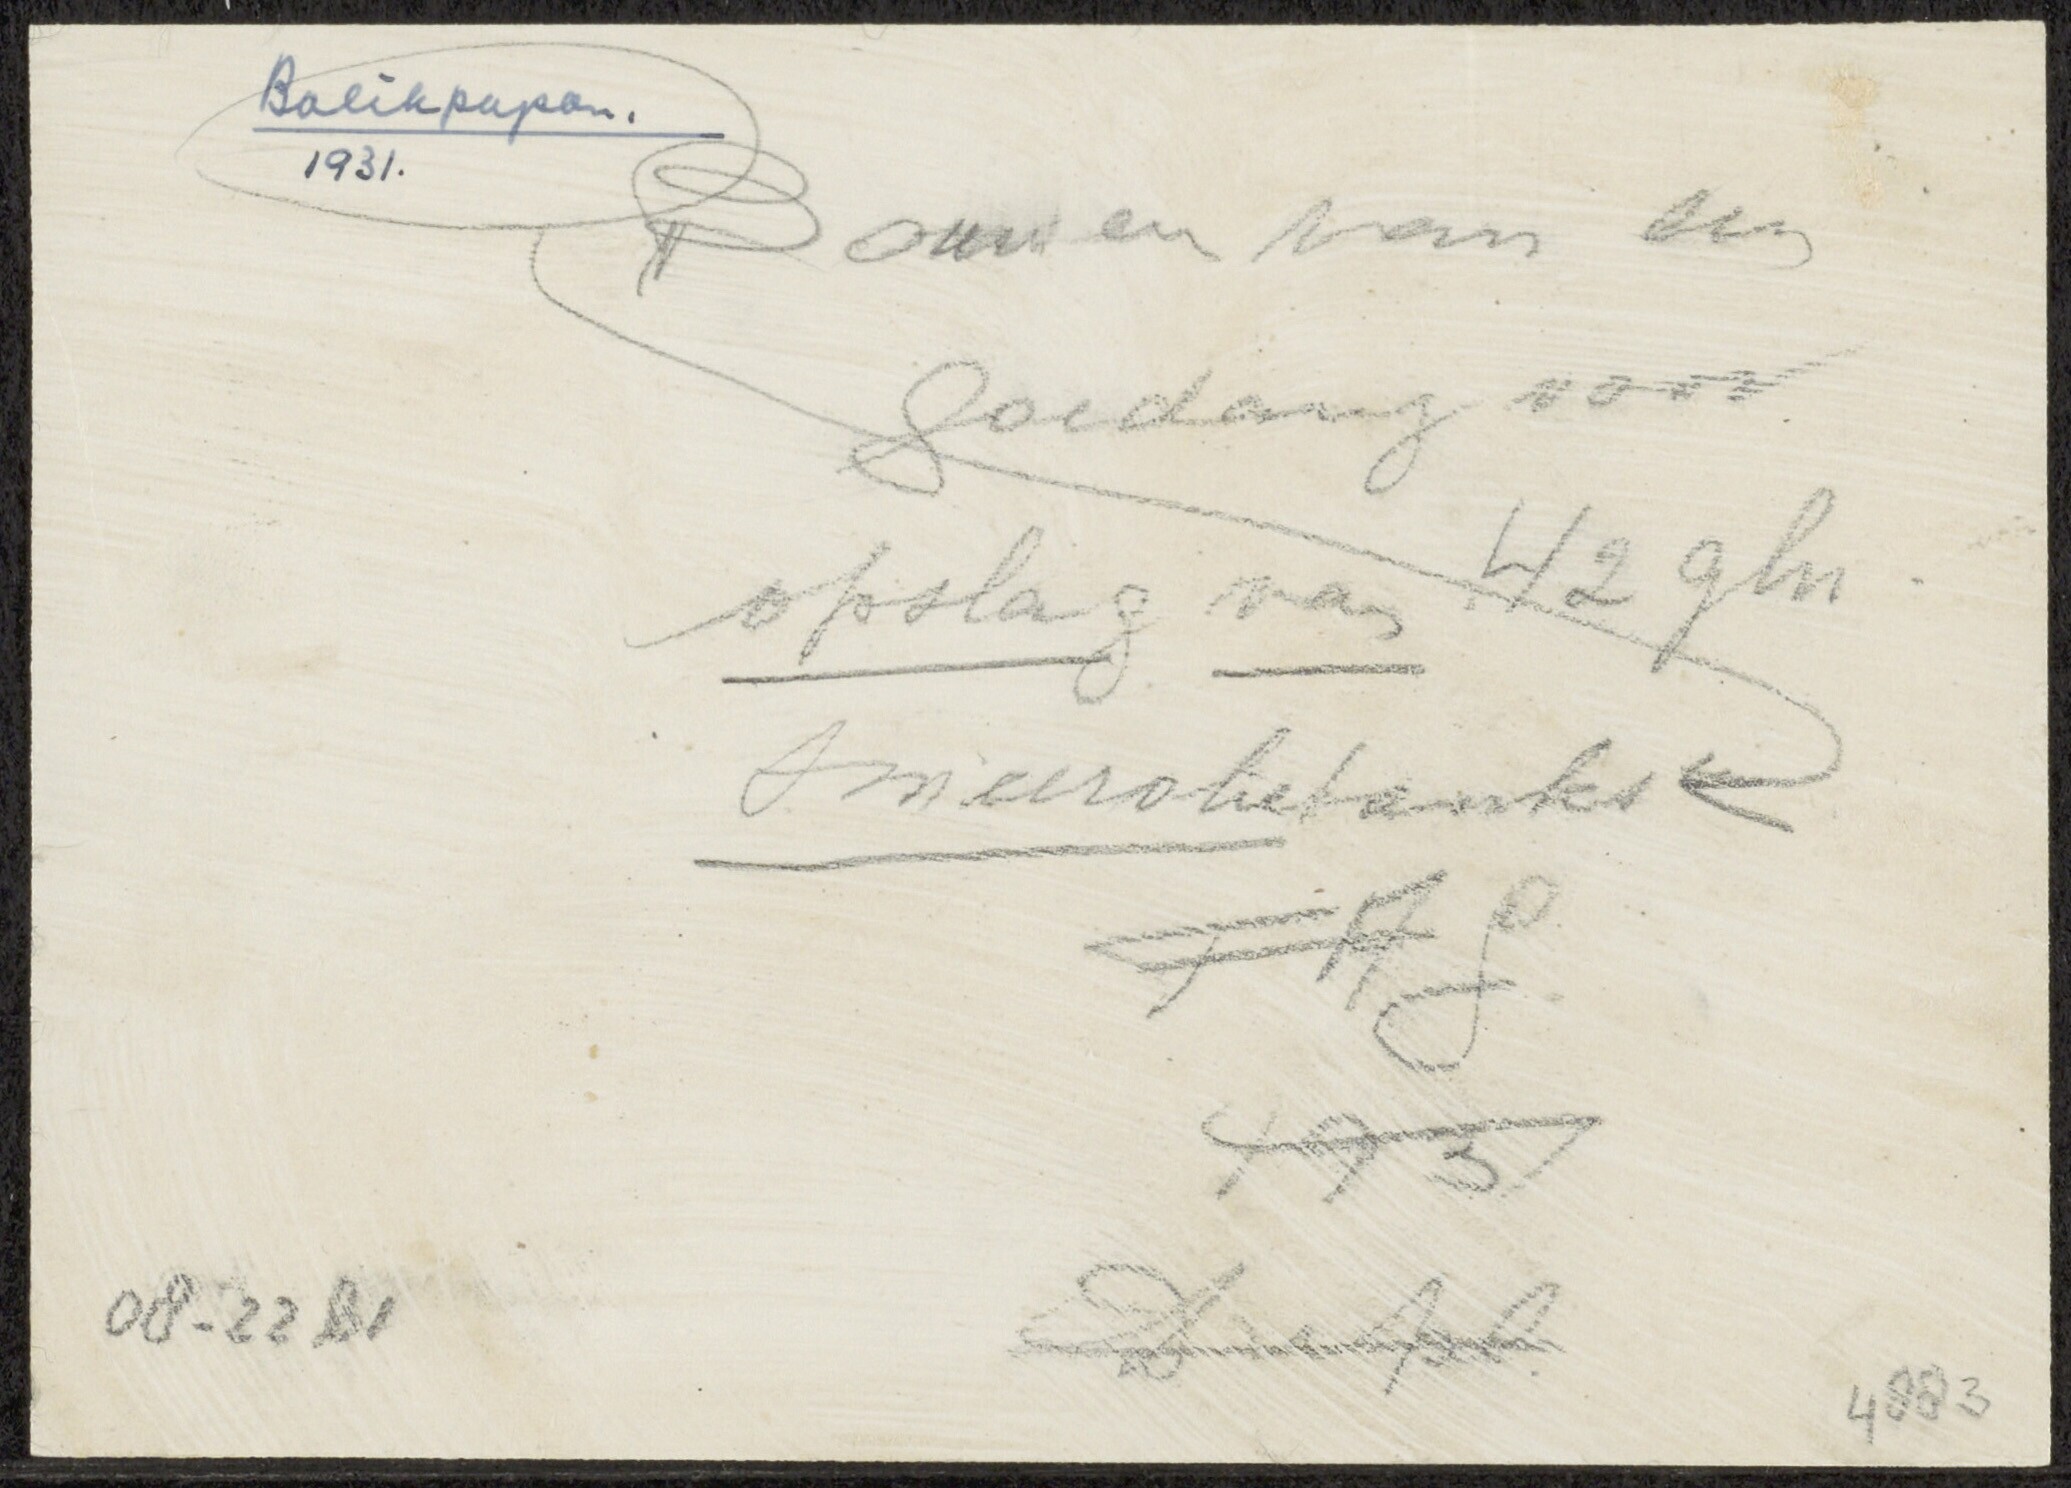 Balikpapan.
1931.
Bouwen van een
goedang voor
opslag van 42 gln
Smeerolietanks
08-22 B1
4883